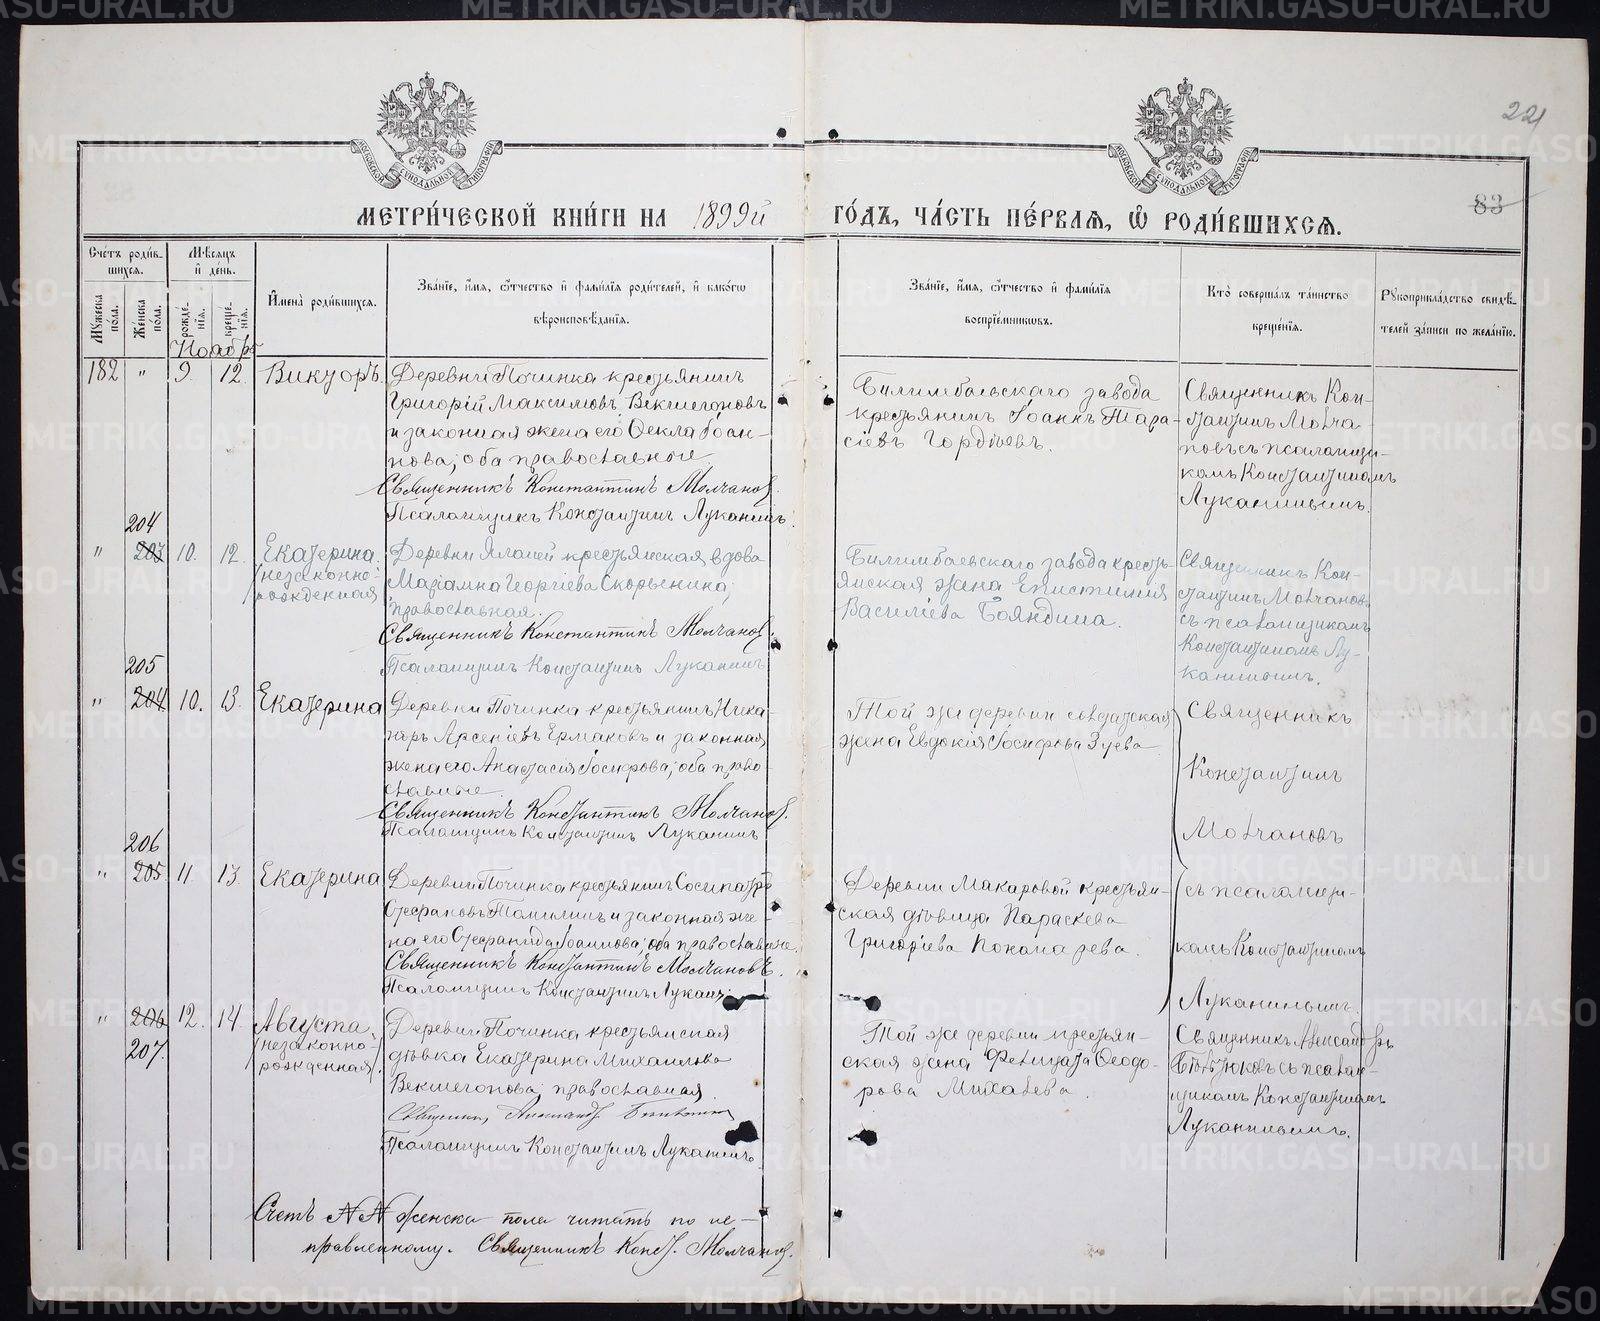 METRIKI.GASO-URAL.RU
22
83
МЕТРИ́ЧЕСКОЙ КНИ́ГИ НА 1899й
ГО́ДЪ, ЧА́СТЬ ПЕ́РВАЯ, Ѽ РОДИ́ВШИХСЯ.
Сче́тъ роди́в-
шихся.
Му́жеска по́ла.
Же́нска по́ла.
Мѣ́сяцъ
и҆ де́нь.
рожде́-
нїя.
креще́-
нїя.
И҆мена̀ роди́вшихся.
Зва́нїе, и҆́мя, ѻ҆́тчество и҆ фамѝлїя роди́телей, и҆ како́гѡ
вѣроисповѣ́данїя.
Зва́нїе, и҆́мя, ѻ҆́тчество и҆ фамѝлїя
воспрїе́мниковъ.
Кто̀ соверша́лъ та́инство
креще́нїя.
Рꙋкоприкла́дство свидѣ́-
телей за́писи по жела́нїю.
Ноябрь
182 " 9. 12. Викторъ.
Деревни Починка крестьянинъ
Григорій Максимовъ Векшегоновъ
и законная жена его Ѳекла Іоан-
нова; оба православные.
Священникъ Константинъ Молчановъ.
Псаломщикъ Константинъ Луканинъ.
Билимбаевскаго завода
крестьянинъ Іоаннъ Тара-
сіевъ Гордѣевъ.
Священникъ Кон-
стантинъ Молча-
новъ съ псаломщи-
комъ Константиномъ
Луканинымъ.
204
" 203 10. 12. Екатерина
(незаконно-
рожденная
Деревни Яланей крестьянская вдова
Маріамна Георгіева Скорынина;
православная.
Священникъ Константинъ Молчановъ.
Псаломщикъ Константинъ Луканинъ
Билимбаевскаго завода кресть-
янская жена Епистимія
Василіева Бояндина.
Священникъ Кон-
стантинъ Молчановъ
съ псаломщикомъ
Константиномъ Лу-
канинымъ.
205
" 204. 10. 13. Екатерина
Деревни Починка крестьянинъ Ника-
норъ Арсеніевъ Ермаковъ и законная
жена его Анастасія Іосифова; оба право-
славные.
Священникъ Константинъ Молчановъ.
Псаломщикъ Константинъ Луканинъ
Той же деревни солдатская
жена Евдокія Іосифова Зуева
Священникъ
Константинъ
Молчановъ
206
" 205. 11. 13. Екатерина
Деревни Починка крестьянинъ Сосипатръ
Стефановъ Томилинъ и законная же-
на его Стефанида Іоаннова; оба православные.
Священникъ Константинъ Молчановъ.
Псаломщикъ Константинъ Луканинъ
Деревни Макаровой крестьян-
ская дѣвица Параскева
Григоріева Пономарева.
съ псаломщи-
комъ Константиномъ
Луканинымъ.
" 206 12. 14. Августа
207.
(незаконно-
рожденная).
Деревни Починка крестьянская
дѣвка Екатерина Михаилова
Векшегонова; православная.
Священникъ Александръ
Псаломщикъ Константинъ Луканинъ.
Той же деревни крестьян-
ская жена Фелицата Ѳеодо-
рова Михалева.
Священникъ Александръ
съ псалом-
щикомъ Константиномъ
Луканинымъ.
Счетъ №№ женска пола читать по ис-
правленному. Священникъ Конст. Молчановъ.